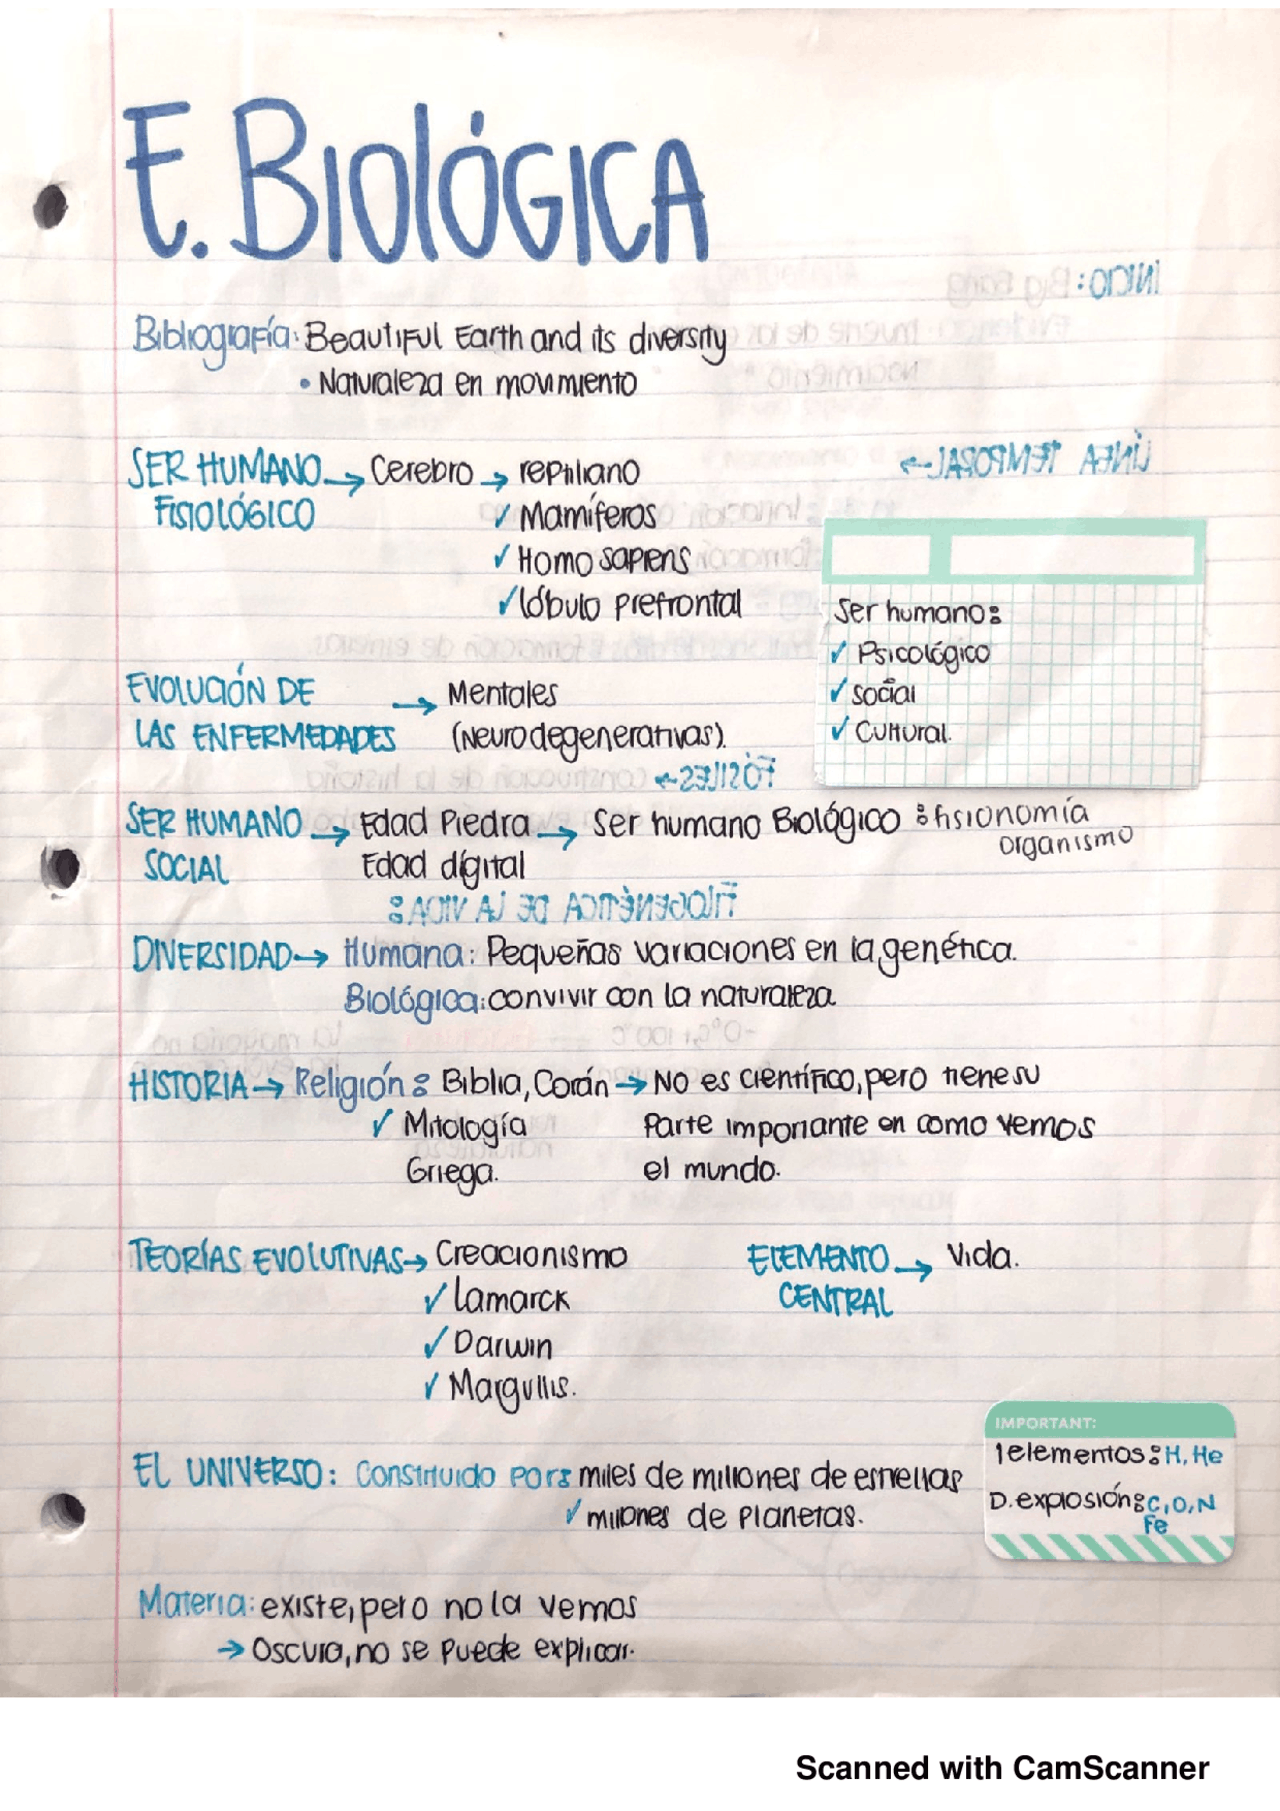 E. BIOLÓGICA
Bibliografía: Beautiful Earth and its diversity
• Naturaleza en movimiento
SER HUMANO → Cerebro → reptiliano
FISIOLÓGICO ✓ Mamíferos
✓ Homo sapiens
✓ lóbulo prefrontal
Ser humano:
✓ Psicológico
✓ social
✓ Cultural.
EVOLUCIÓN DE → Mentales
LAS ENFERMEDADES (Neurodegenerativas).
SER HUMANO → Edad Piedra → Ser humano Biológico : fisionomía
organismo
SOCIAL Edad dígital
DIVERSIDAD → Humana: Pequeñas variaciones en la genética.
Biológica: convivir con la naturaleza
HISTORIA → Religión : Biblia, Corán → No es científico, pero tiene su
✓ Mitología Parte importante en como vemos
Griega. el mundo.
TEORÍAS EVOLUTIVAS → Creacionismo
✓ Lamarck
✓ Darwin
✓ Margullis.
ELEMENTO → Vida.
CENTRAL
IMPORTANT:
1elementos: H, He
D. explosión: C, O, N
Fe
EL UNIVERSO: Construido por: miles de millones de estrellas
✓ millones de planetas.
Materia: existe, pero no la vemos
→ Oscura, no se puede explicar.
Scanned with CamScanner